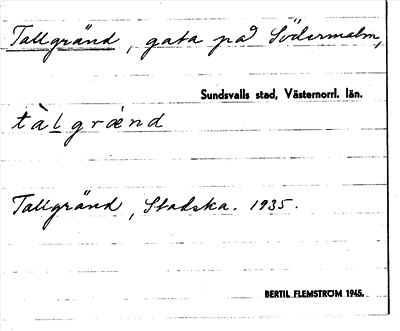 Tallgränd, gata på Södermalm,
Sundsvalls stad, Västernorrl. län.
tàlgrænd
Tallgränd, Stadska. 1935.
BERTIL FLEMSTRÖM 1945.